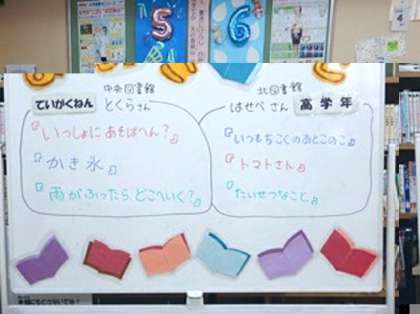 5 6
4
中央図書館
ていがくねん とくらさん
『いっしょにあそばへん?』
『かき氷』
『雨がふったら、どこへいく?』
北図書館
はせべさん 高学年
『いつもちこくのおとこのこ』
『トマトさん』
『たいせつなこと』